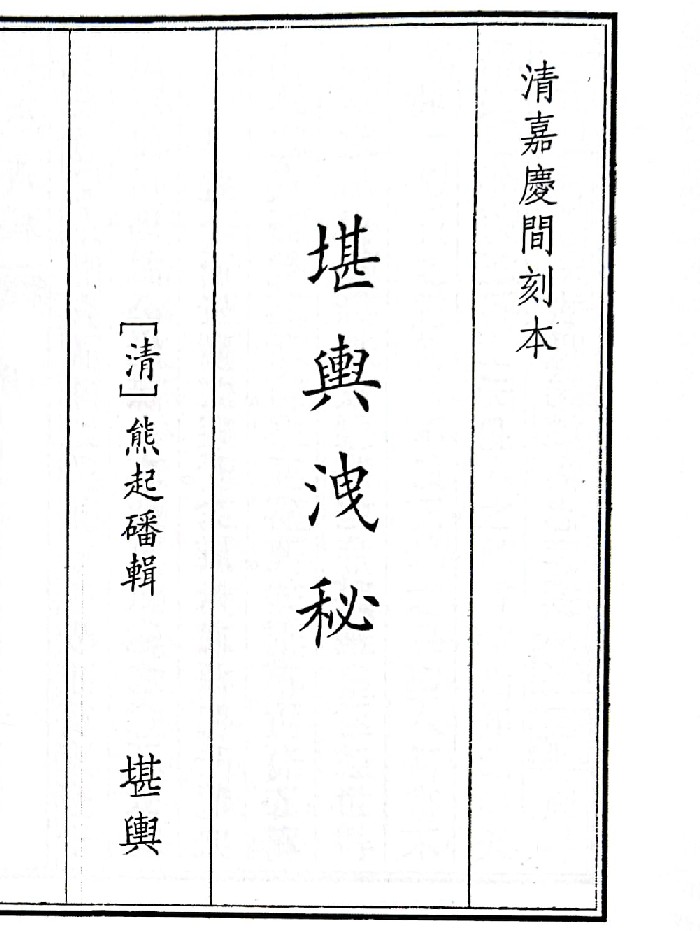 清嘉慶間刻本
堪輿洩秘
[清]熊起磻輯
堪輿